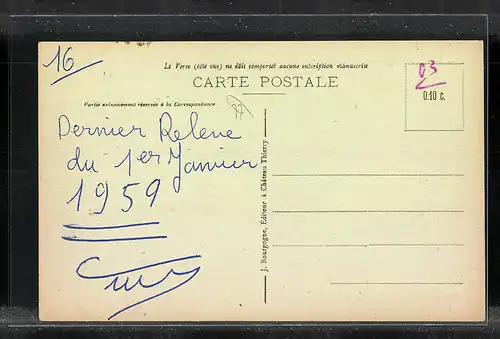 16
Le Verso (côté vue) ne doit comporter aucune inscription manuscrite
CARTE POSTALE
03
0.10 c.
Partie exclusivement réservée à la Correspondance
Dernier Releve
du 1er Janvier
1959
J. Bourgogne, Editeur à Château Thierry